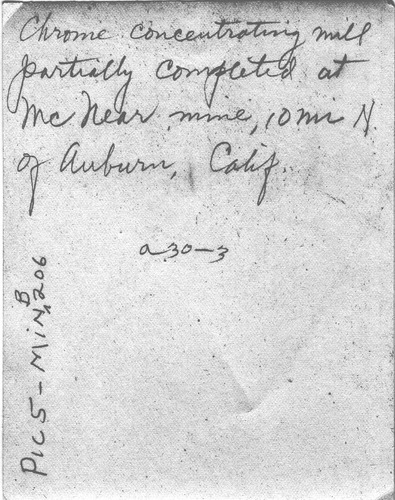 Chrome concentrating mill
partially completed at
McNear mine, 10 mi N.
of Auburn, Calif.
a30-3
PIC5-MIN B 206